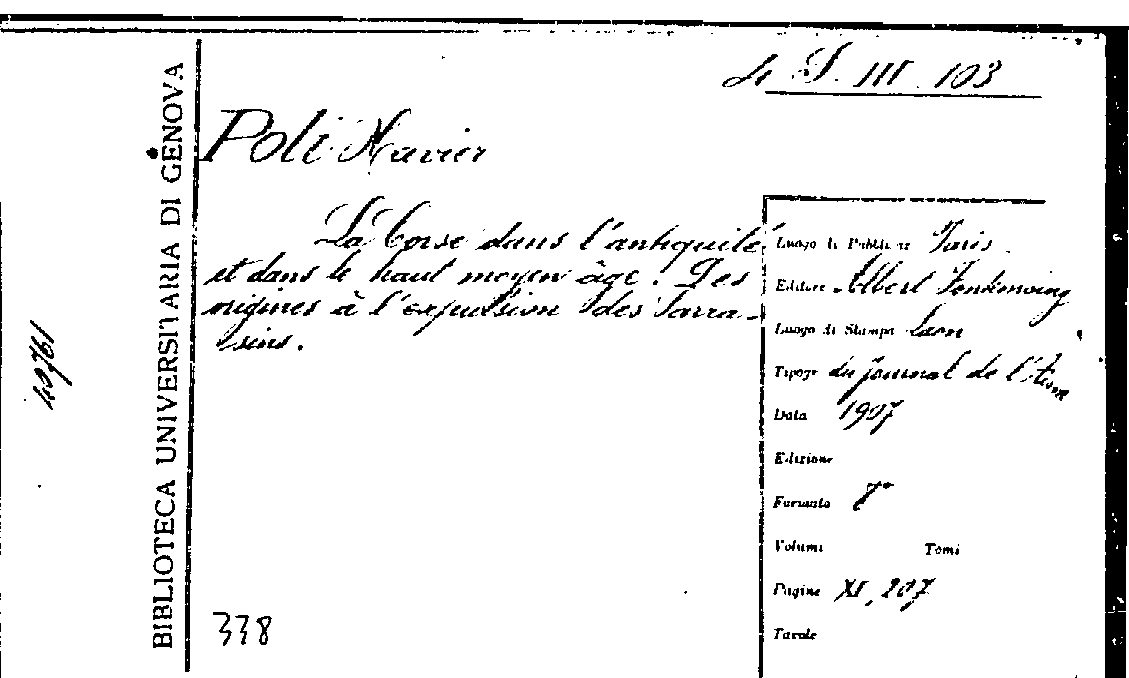 4 S. III. 103
Poli Xavier
La Corse dans l'antiquité
et dans le haut moyen âge. Des
origines à l'expulsion des Sarra-
sins.
Luogo di Pubblic ne Paris.
Editore Albert Fontemoing
Luogo di Stampa Laon
Tipogr du journal de l'Aisne
Data 1907
Edizione
Formato 8°
Volumi Tomi
Pagine XI, 207
Tavole
338
BIBLIOTECA UNIVERSITARIA DI GENOVA
40761